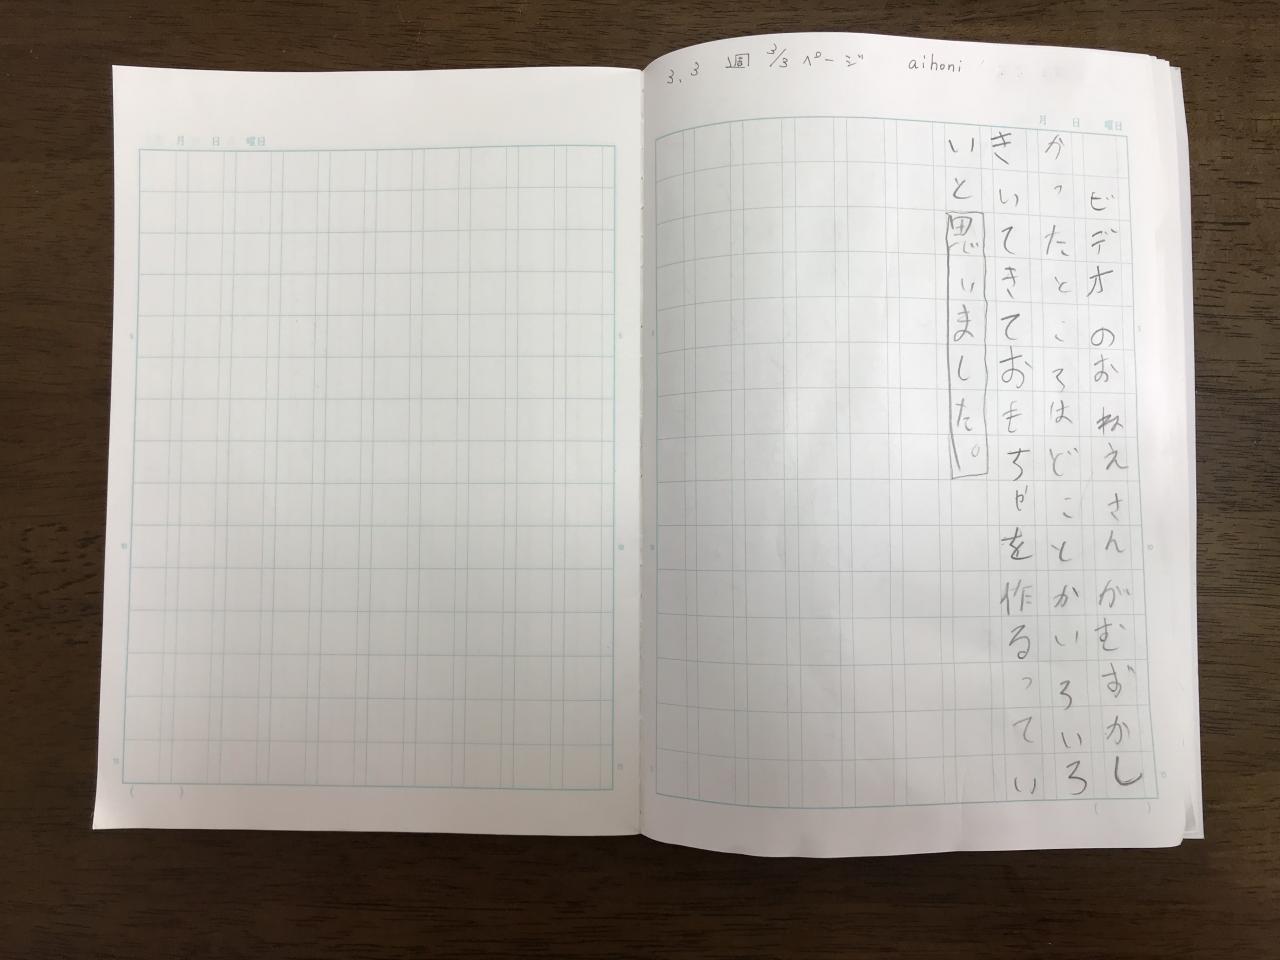 3.3 1週 3/3 ページ aihoni
月 日 曜日
ビデオのおねえさんがむずかし
かったところはどことかいろいろ
きいてきておもちゃを作るってい
いと思いました。
月 日 曜日